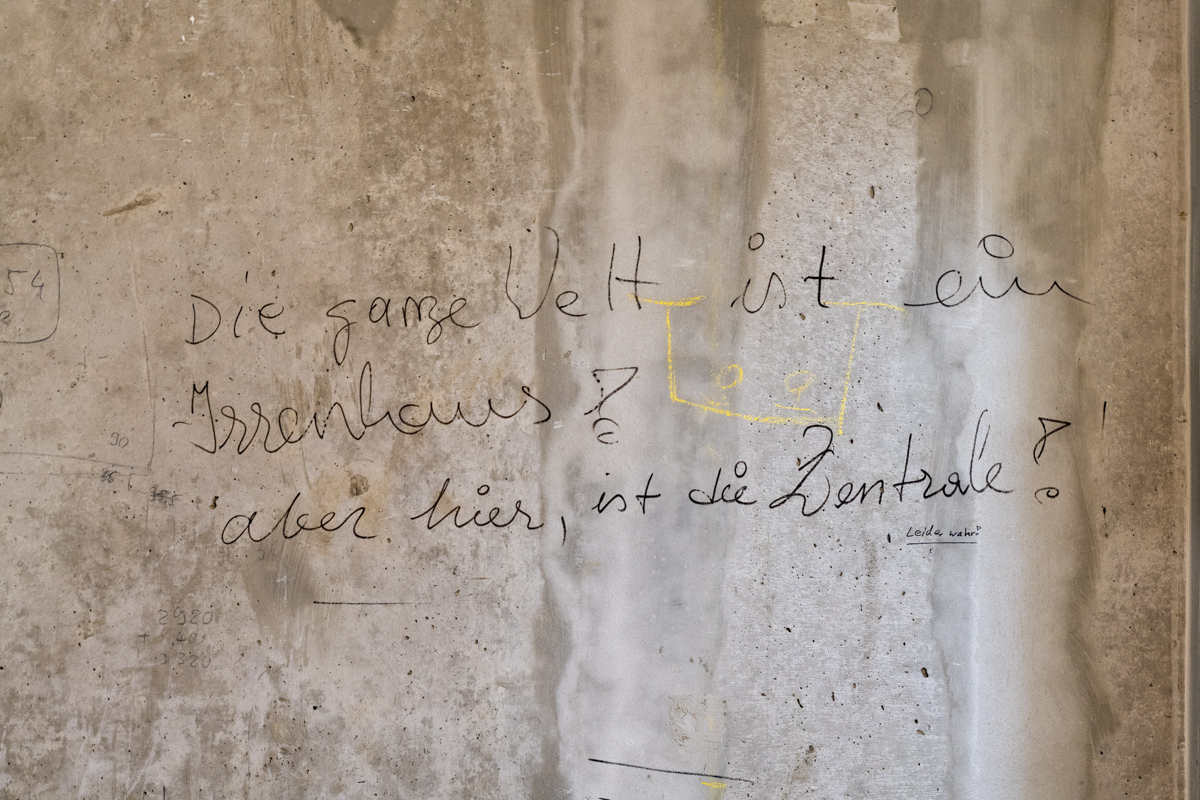 54
Die ganze Welt ist ein
Irrenhaus!
90
aber hier, ist die Zentrale!
Leider wahr!
2920
+ 40
3320